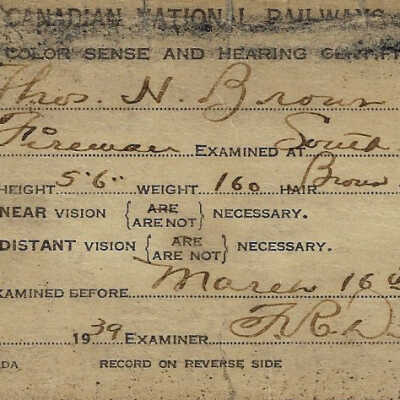 CANADIAN NATIONAL RAILWAYS
COLOR SENSE AND HEARING CERTIF
Thos. N. Brown
Fireman EXAMINED AT South
HEIGHT 5'6" WEIGHT 160 HAIR Brown
NEAR VISION {ARE ARE NOT} NECESSARY.
DISTANT VISION {ARE ARE NOT} NECESSARY.
EXAMINED BEFORE March 16th
1939 EXAMINER
DA RECORD ON REVERSE SIDE